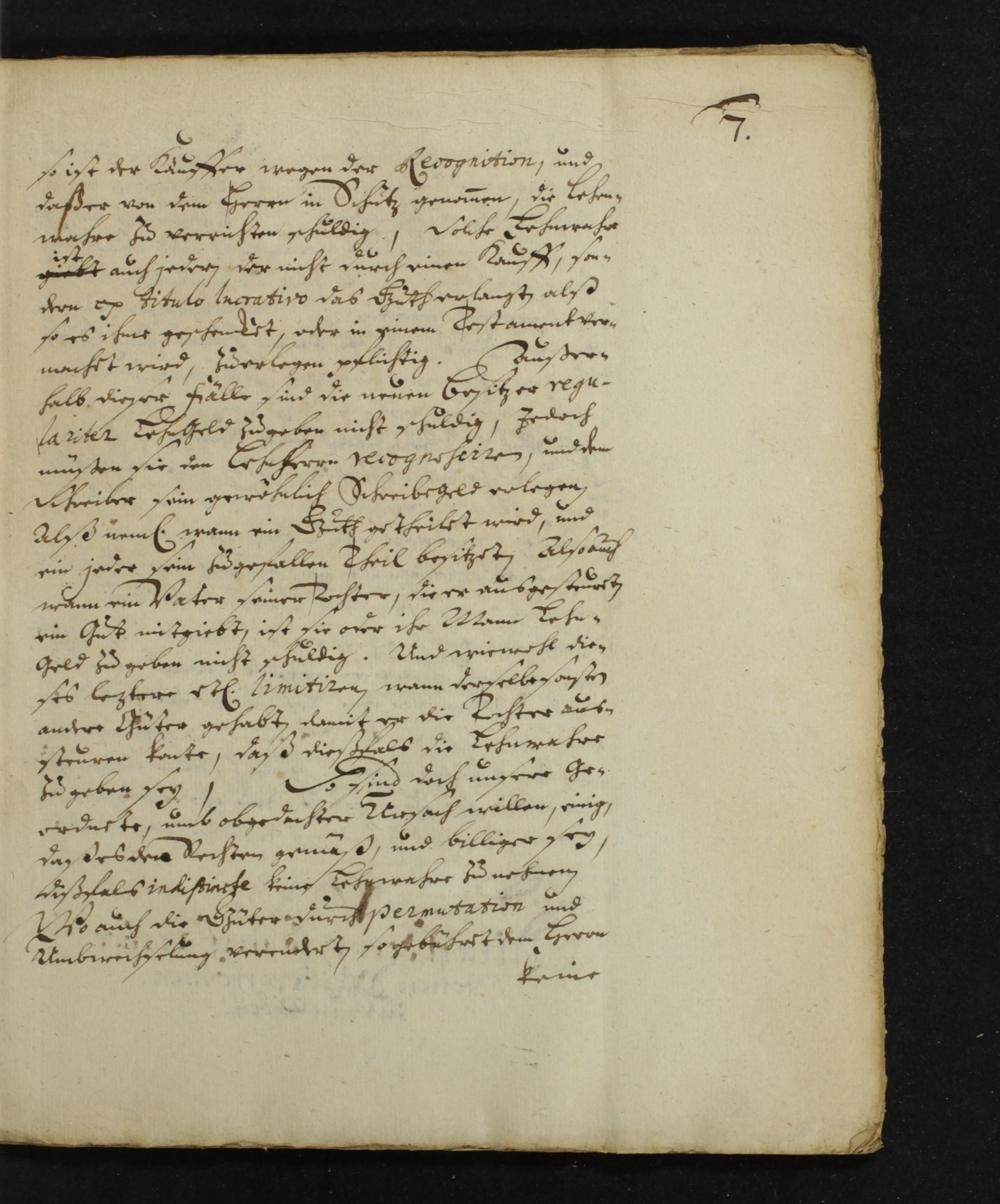 7.
so ist der Käuffer wegen der Recognition, und
daß er von dem Herrn in Schutz genom̄en, die Lehen-
wahre zu verrichten schuldig, Solche Lehnwahr
ist
giebt auch jeder, der nicht durch einen Kauff, son-
dern ex titulo lucrativo das Guth erlangt, alß
so es ihme geschencket, oder in einem Testament ver-
macht wird, zuerlegen pflichtig. Außer-
halb dieser Fälle sind die neuen Besitzer regu-
lariter LehnGeld zugeben nicht schuldig, Jedoch
müßen sie den Lehnherrn recognosciren, und dem
Schreiber sein gewöhnlich Schreibegeld erlegen,
Alß neml. wann ein Guth getheilet wird, und
ein jeder sein zugefallen Theil besitzet, Also auch
wann ein Vater seiner Tochter, die er ausgesteuret,
ein Guth mitgiebt, ist sie oder ihr Mann Lehn-
Geld zu geben nicht schuldig. Und wiewohl die-
ses letztere etl. limitiren, wann derselbe sonsten
andere Güter gehabt, damit er die Tochter aus-
steuren konte, daß dießfals die Lehnwahre
zu geben sey, So sind doch unsere Ge-
ordnete, umb obgedachter Ursach willen, einig,
daß es den Rechten gemäß, und billiger sey,
dißfals indistincte keine Lehnwahre zu nehmen,
Wo auch die Güter durch permutation und
Umbwechselung verendert, so gebühret dem Herrn
keine